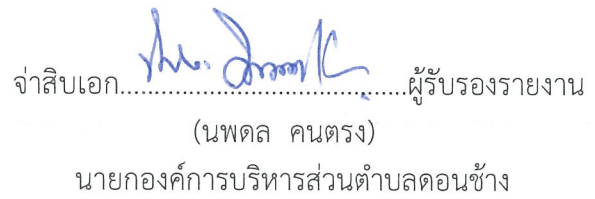 จ่าสิบเอก................................ผู้รับรองรายงาน
(นพดล คนตรง)
นายกองค์การบริหารส่วนตำบลดอนช้าง